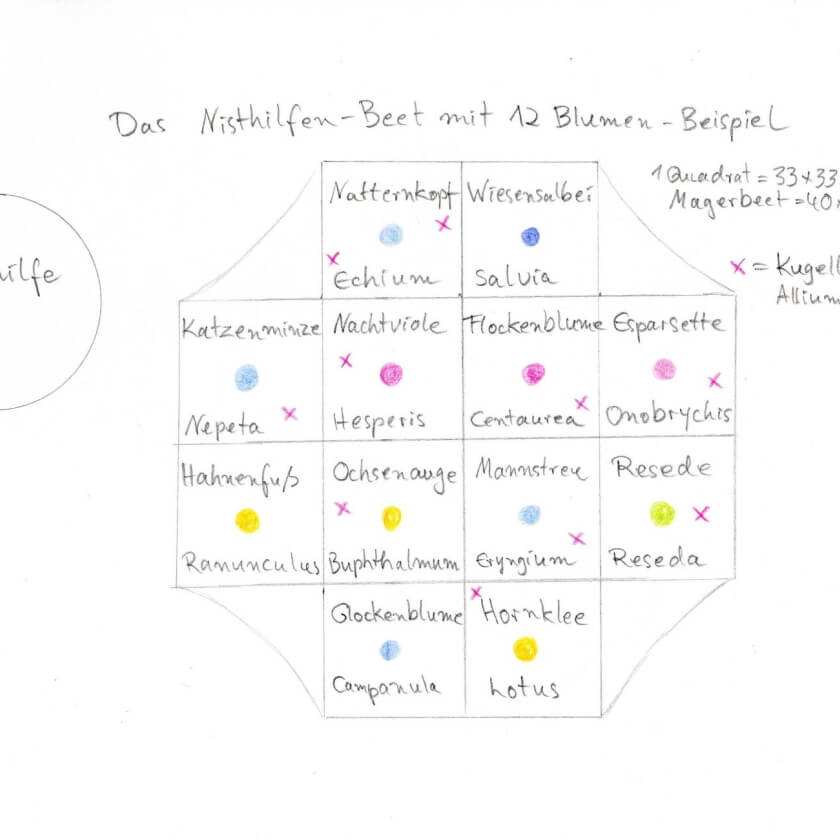 Das Nisthilfen-Beet mit 12 Blumen-Beispiel
1 Quadrat = 33x33
Magerbeet = 40
x = Kugell
Allium
hilfe
Natternkopf Wiesensalbei
Echium Salvia
Katzenminze Nachtviole Flockenblume Esparsette
Nepeta Hesperis Centaurea Onobrychis
Hahnenfuß Ochsenauge Mannstreu Resede
Ranunculus Buphthalmum Eryngium Reseda
Glockenblume Hornklee
Campanula Lotus